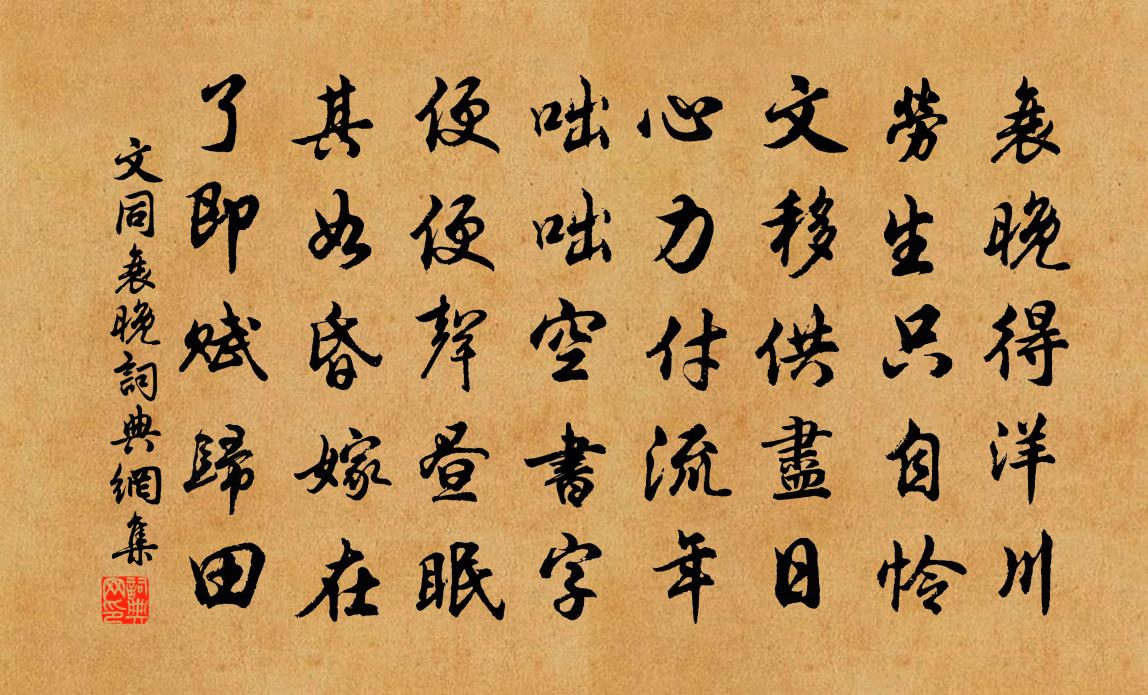 衰晚得洋川
勞生只自怜
文移供盡日
心力付流年
咄咄空書字
便便聲昼眠
其如昏嫁在
了即賦歸田
文同衰晚詞典網集
詞典网印